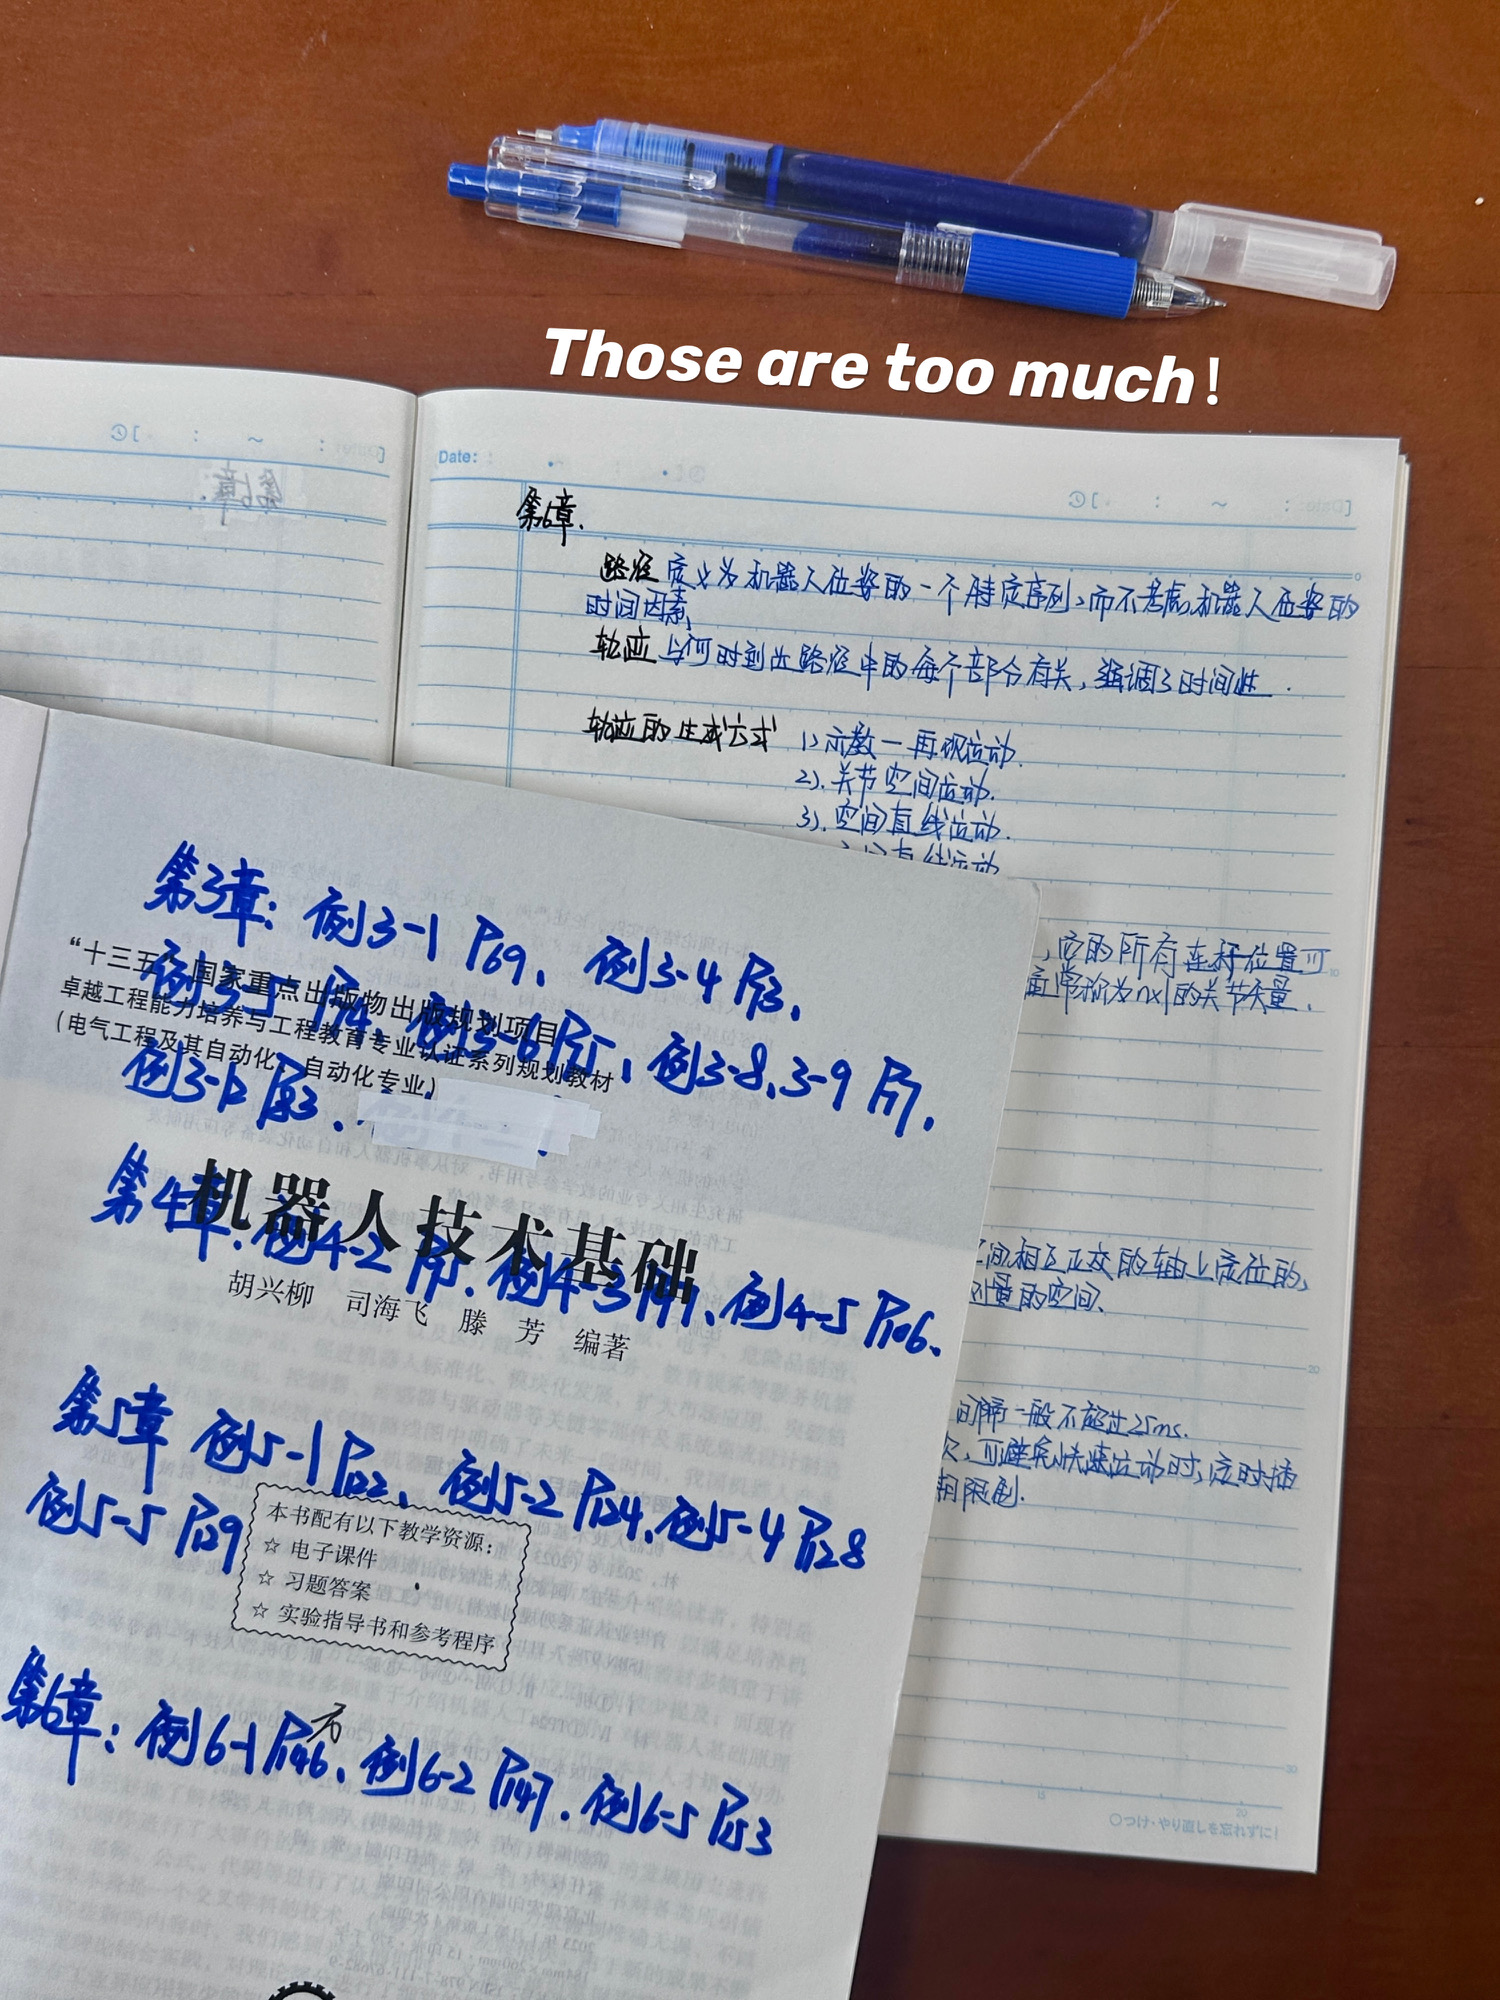 Those are too much!
Date:
第6章.
路径 定义为机器人位姿的一个特定序列,而不考虑机器人位姿的
时间因素、
轨迹 与何时到达路径中的每个部分有关,强调了时间性.
轨迹的生成方式 1).示教一再现运动.
2).关节空间运动.
3).空间直线运动.
,它的所有连杆位置可
量常称为nx1的关节矢量.
间相互正交的轴上定位的,
量的空间.
间隔一般不超过25ms.
可避免快速运动时,定时插
限制.
つけ・やり直しを忘れずに!
第3章: 例3-1 P69、例3-4 P73、
例3-5 P74、例3-6 P75、例3-8、3-9 P77.
例3-12 P83.
“十三五”国家重点出版物出版规划项目
卓越工程能力培养与工程教育专业认证系列规划教材
(电气工程及其自动化、自动化专业)
第4章. 例4-2 例4-3 例4-5 P106、
机器人技术基础
胡兴柳 司海飞 滕 芳 编著
第5章 例5-1 P122、例5-2 P124、例5-4 P128
例5-5 P129
本书配有以下教学资源:
☆ 电子课件
☆ 习题答案
☆ 实验指导书和参考程序
第6章: 例6-1 P146、例6-2 P147. 例6-5 P153